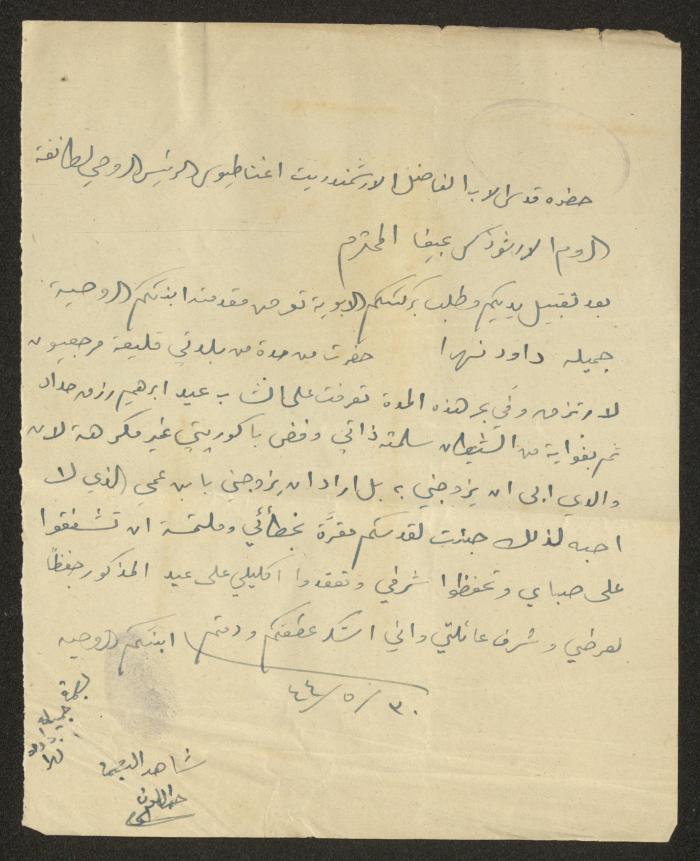 حضرة قدس الاب الفاضل الارشمندريت اغناطيوس الرئيس الروحي لطائفة
الروم الارثوذكس بحيفا المحترم
بعد تقبيل يديكم وطلب بركتكم الابوية تعرض مقدمته ابنتكم الروحية
جميله داود نهرا حضرت من مدة من بلدتي قليعة مرجعيون
لارتزق وفي بحر هذه المدة تعرفت على الشاب عيد ابرهيم رزق حداد
ثم بغواية من الشيطان سلمته ذاتي وفض باكوريتي غير مكرهة لان
والدي ابى ان يزوجني بل اراد ان يزوجني بابن عمي الذي لا
احبه لذلك جئت لقدسكم مقرَّة بخطائي وملتمسة ان تشفقوا
على صباي وتحفظوا شرفي وتعقدوا اكليلي على عيد المذكور حفظاً
لعرضي وشرف عائلتي واني اشكر عطفكم ودمتم ابنتكم الروحيه
٣٠/٥/٤٤
بصمة
جميله
داود
نهرا
شاهد البصمة